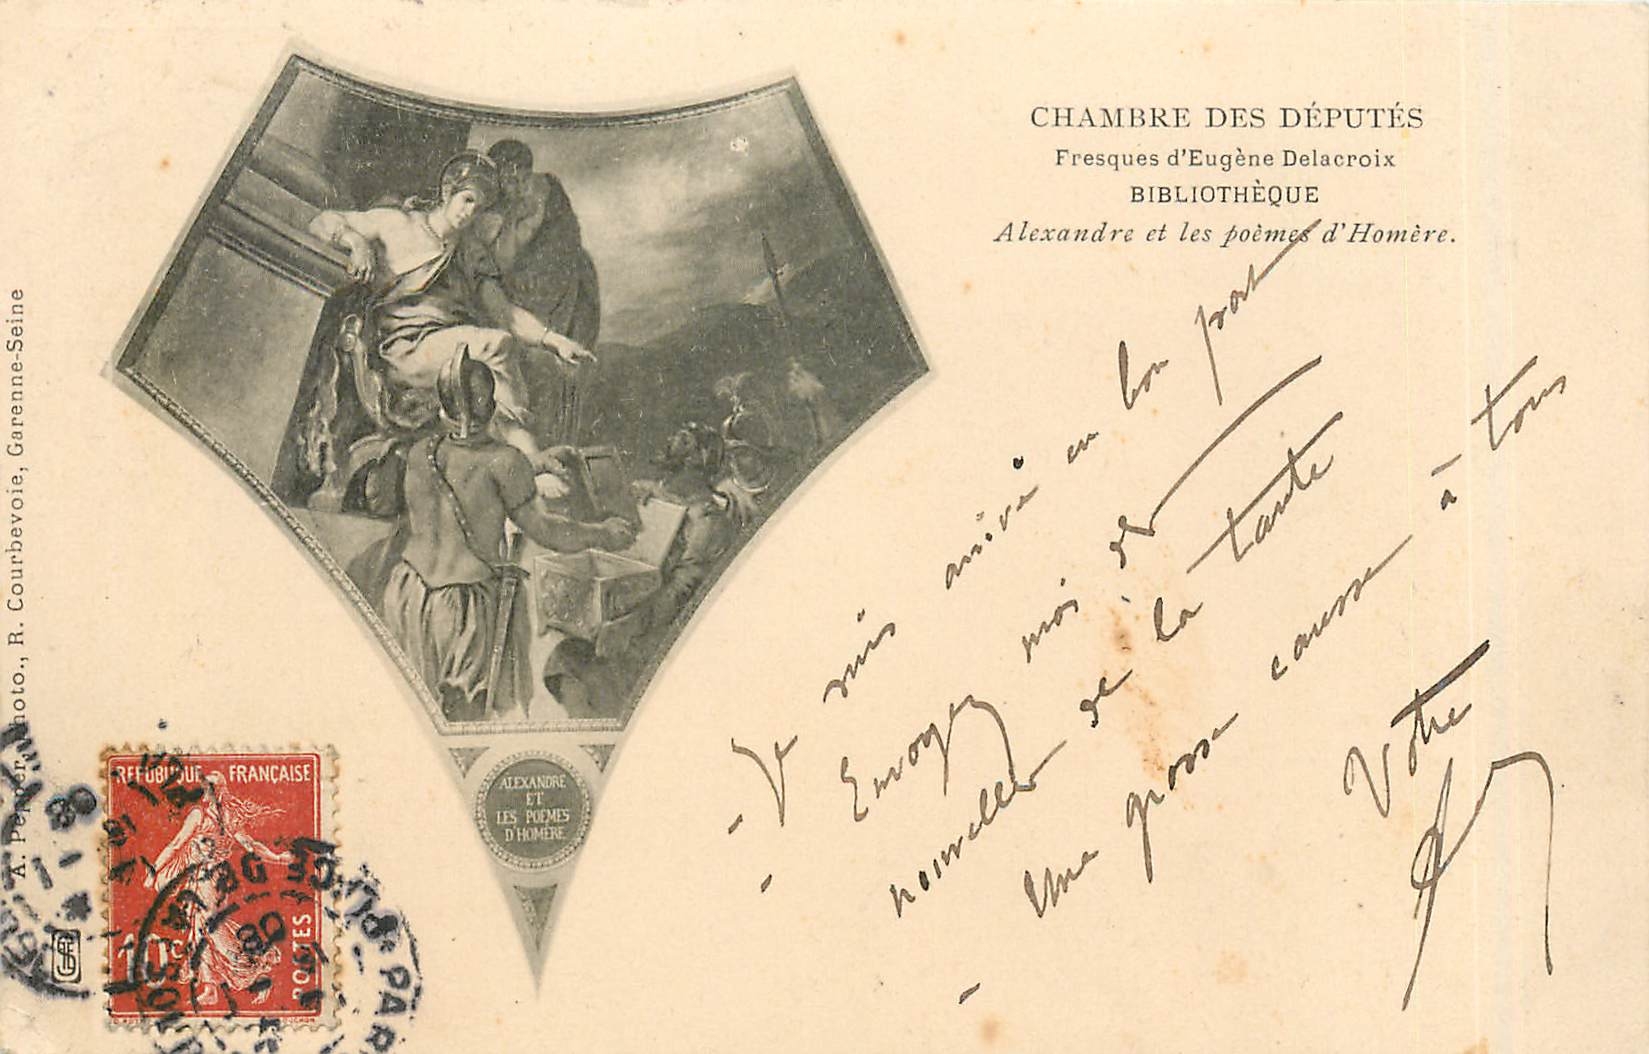 CHAMBRE DES DÉPUTÉS
Fresques d'Eugène Delacroix
BIBLIOTHÈQUE
Alexandre et les poèmes d'Homère.
- Je suis arrivé en bon port
- Envoyez moi des
nouvelles de la tante
- Une grosse caresse à tous
Votre
ALEXANDRE
ET
LES POËMES
D'HOMÈRE
hoto., R. Courbevoie, Garenne-Seine
REPUBLIQUE FRANÇAISE
10c
POSTES
PLACE DE LA
PAR
08